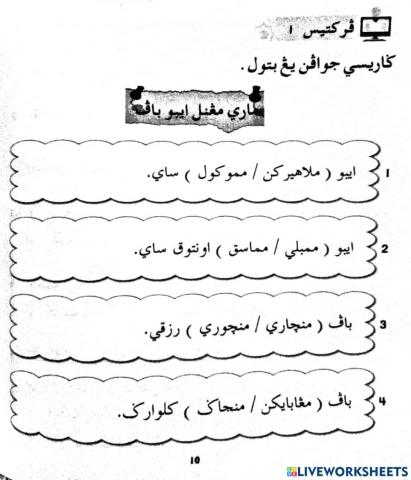 ڤرکتيس ١
ݢاريسي جواڤن يڠ بتول.
ماري مڠنل ايبو باڤ
1 ايبو ( ملاهيرکن / مموکول ) ساي.
2 ايبو ( ممبلي / مماسق ) اونتوق ساي.
3 باڤ ( منچاري / منچوري ) رزقي.
4 باڤ ( مڠابايکن / منجاݢ ) کلوارݢ.
١٥
LIVEWORKSHEETS